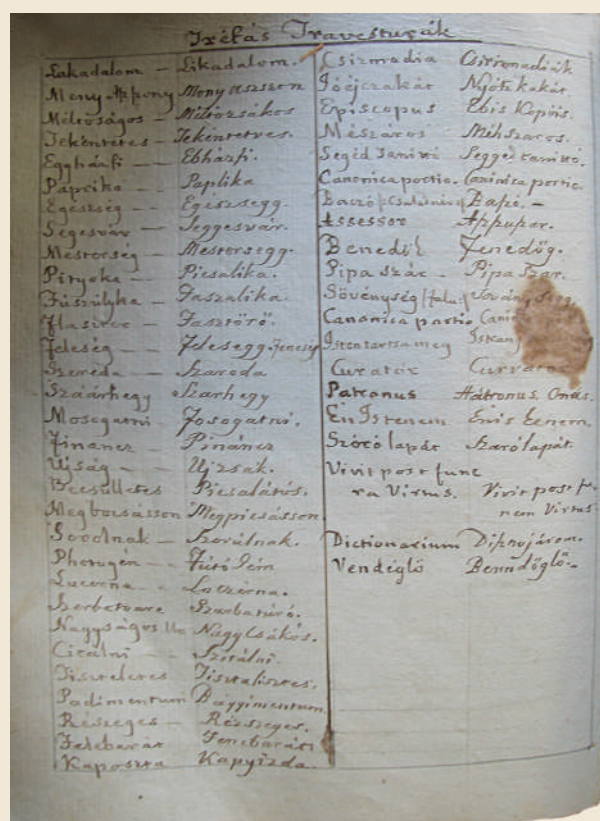 Tréfás Travesturák
Lakadalom – Likadalom.
Meny Appony Monyasszon
Méltóságos – Méltozsákos
Tekéntetes – Tekéntetves.
Eggházfi – – Ebházfi.
Paprika – – Paplika
Egésség – Egészsegg.
Segesvár – Seggesvár.
Mestorség – Mestorsegg.
Pityoka – – Picsalika.
Fuszulyka – Faszalika.
Flastrom – Fasztörő.
Feleség – Felesegg.
Szereda – Szaroda
Szárhegy Szarhegy
Mosogatni – Fosogatni.
Financz – Pináncz
Ujság – – Ujzsák.
Becsülletes Picsalátós.
Megbocsásson Megpicsásson
Sorolnak – Szorúlnak.
Photogén – Fútó Gén
Lucerna – Loczérna.
Szerbetvare Szarbatúró.
Nagyságos Nagycsákós.
Citálni – Szitálni.
Tiszteletes Tisztalisztes.
Padimentum Baggimentum.
Részeges – Rézszeges.
Felebarát Fenebarát
Kaposzta Kapyizda.
Csizmadia Csirionadiák
Jóéjczakát Nyótzkakát
Episcopus Ebis Kopiis.
Mészáros Méhszaros.
Segéd tanitó Segged tanitó.
Canonica portio. Caninica portio.
Báczó Bapó. –
Assessor Appupar.
Benedek Fenedög.
Pipa szár – Pipa szar.
Sövénység Sovány
Canonica portio
Isten tartsa meg
Curator Curvator
Patronus Hátronus. Onás.
Én Istenem Enis Eenem.
Szóró lapát Szaró lapát.
Vivit post fune
ra Virtus. Vivit post fu-
nem Virtus
Dictionarium Disznojárom.
Vendéglő Benndöglő.